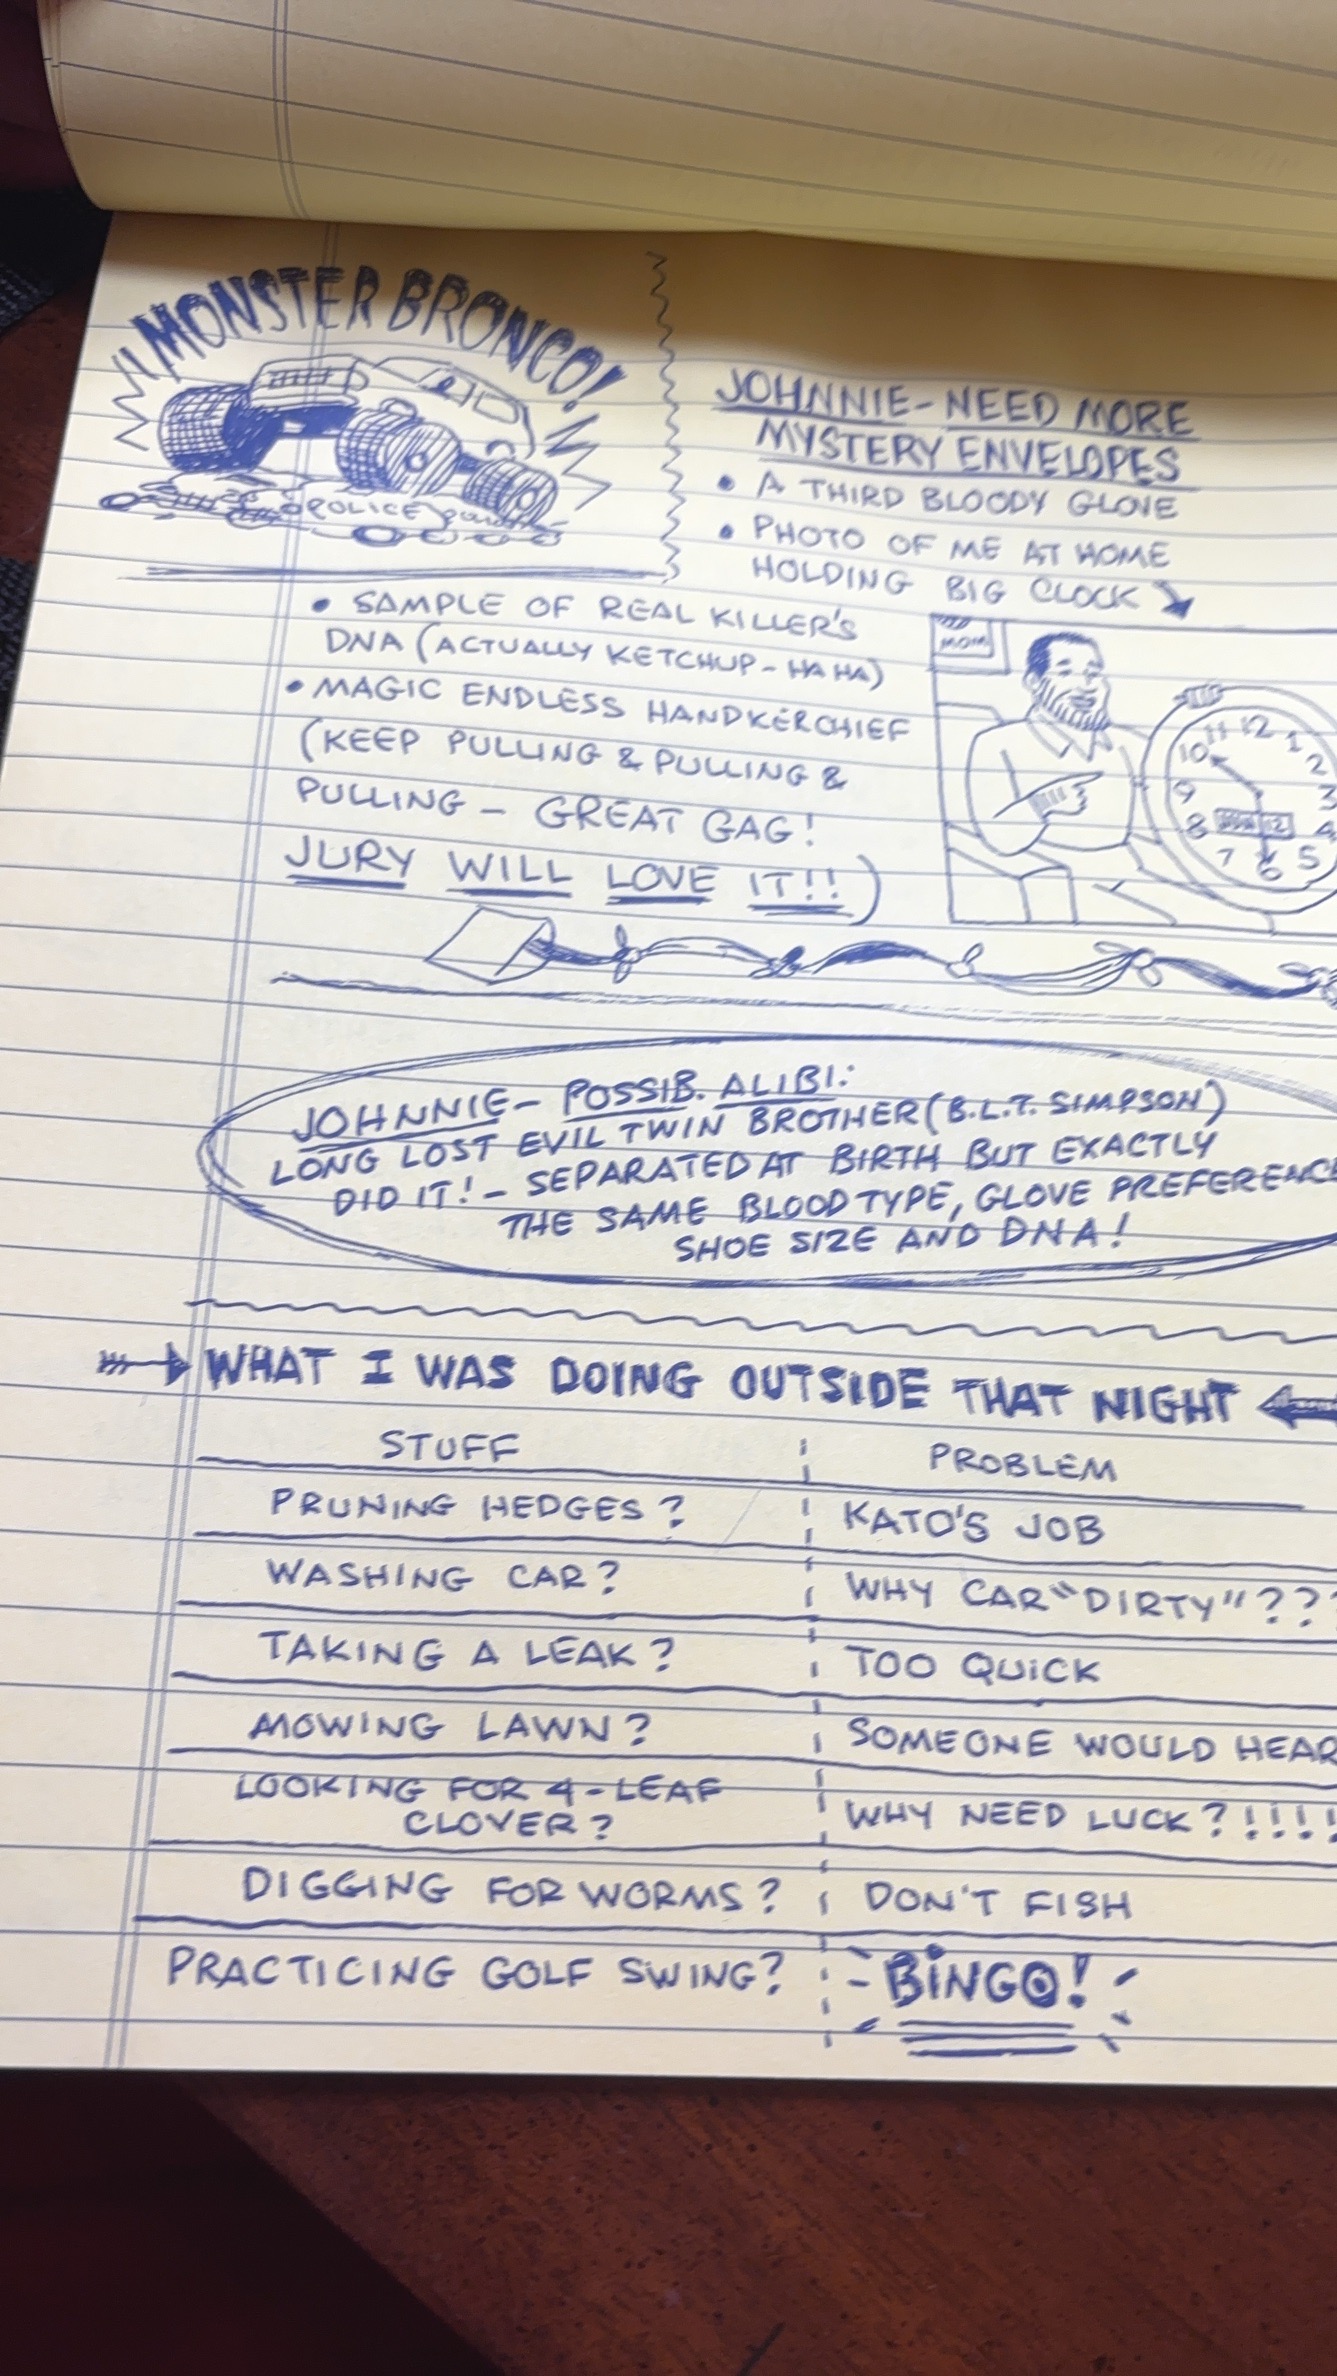 MONSTER BRONCO!
POLICE
JOHNNIE - NEED MORE
MYSTERY ENVELOPES
• A THIRD BLOODY GLOVE
• PHOTO OF ME AT HOME
HOLDING BIG CLOCK
MOM
11 12 1
10 2
9 3
8 12 4
7 6 5
• SAMPLE OF REAL KILLER'S
DNA (ACTUALLY KETCHUP - HA HA)
• MAGIC ENDLESS HANDKERCHIEF
(KEEP PULLING & PULLING &
PULLING - GREAT GAG!
JURY WILL LOVE IT!!)
JOHNNIE - POSSIB. ALIBI:
LONG LOST EVIL TWIN BROTHER (B.L.T. SIMPSON)
DID IT! - SEPARATED AT BIRTH BUT EXACTLY
THE SAME BLOOD TYPE, GLOVE PREFERENCE
SHOE SIZE AND DNA!
WHAT I WAS DOING OUTSIDE THAT NIGHT
STUFF PROBLEM
PRUNING HEDGES? KATO'S JOB
WASHING CAR? WHY CAR "DIRTY"???
TAKING A LEAK? TOO QUICK
MOWING LAWN? SOMEONE WOULD HEAR
LOOKING FOR 4-LEAF
CLOVER? WHY NEED LUCK?!!!!
DIGGING FOR WORMS? DON'T FISH
PRACTICING GOLF SWING? BINGO!